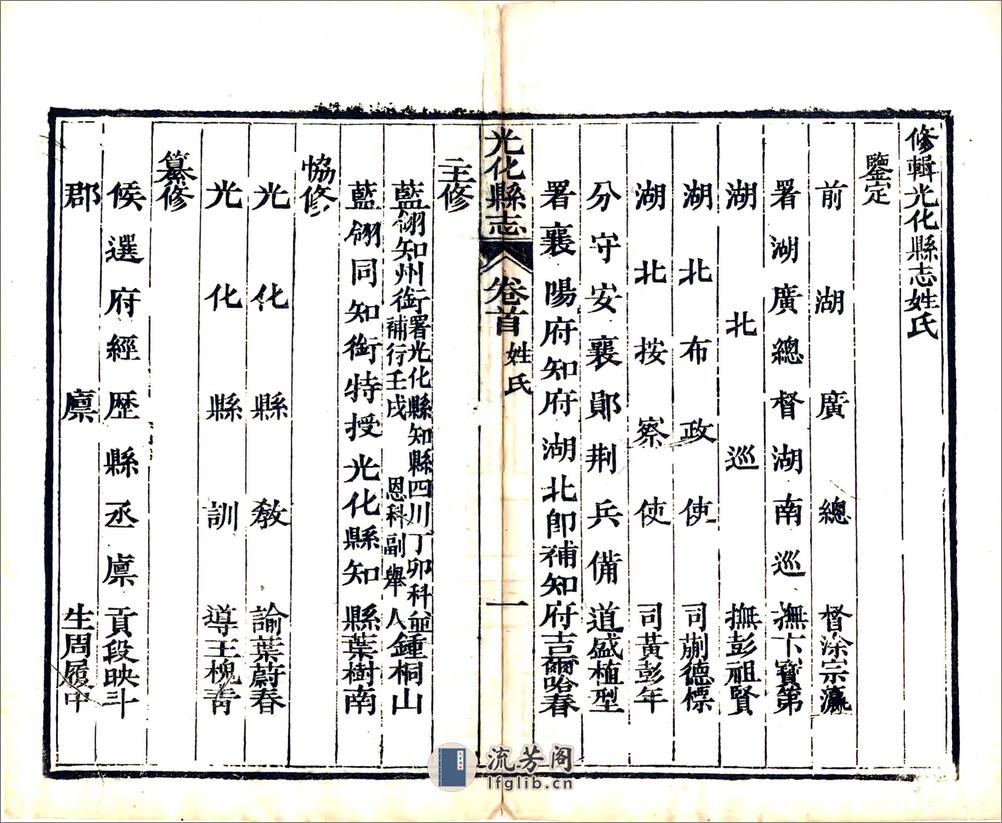 修輯光化縣志姓氏
鑒定
前湖廣總督涂宗瀛
署湖廣總督湖南巡撫卞寶第
湖北巡撫彭祖賢
湖北布政使司蒯德標
湖北按察使司黃彭年
分守安襄鄖荆兵備道盛植型
署襄陽府知府湖北卽補知府吉爾哈春
光化縣志
卷首
姓氏
一
主修
藍翎知州銜署光化縣知縣四川丁卯科並補行壬戌恩科副舉人鍾桐山
藍翎同知銜特授光化縣知縣葉樹南
協修
光化縣教諭葉蔚春
光化縣訓導王槐青
纂修
候選府經歷縣丞廪貢段映斗
郡廪生周履中
流芳阁
lfglib.cn